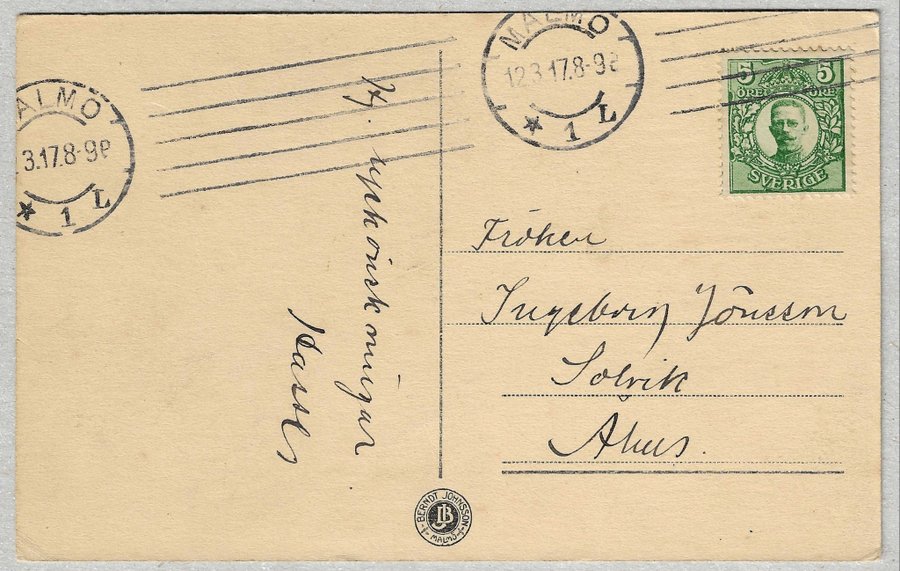 MALMÖ
3.17.8-9e
★ 1 L
MALMÖ
12 3.17.8-9e
★ 1 L
5 5
ÖRE ÖRE
SVERIGE
Hj. lyckönskningar
Fröken
Ingeborg Jönsson
Solvik
Ahus.
BERNDT JOHNSSON
JB
MALMÖ